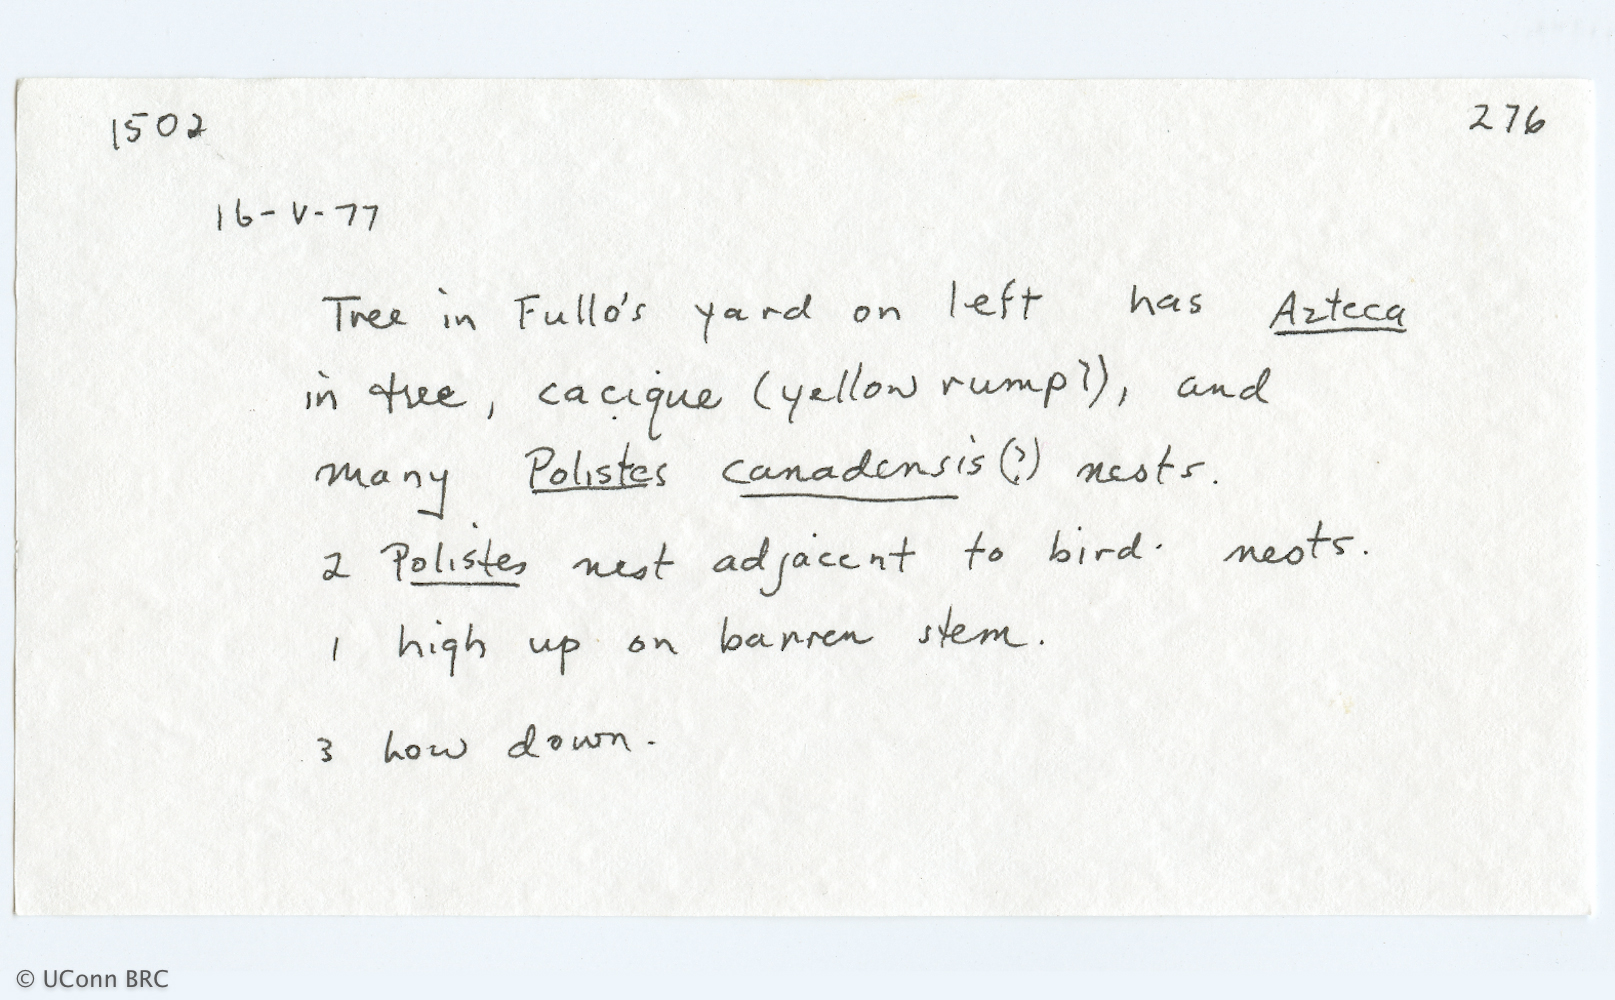 1502 276
16-V-77
Tree in Fullo's yard on left has Azteca
in tree, cacique (yellow rump?), and
many Polistes canadensis(?) nests.
2 Polistes nest adjacent to bird. nests.
1 high up on barren stem.
3 how down.
© UConn BRC